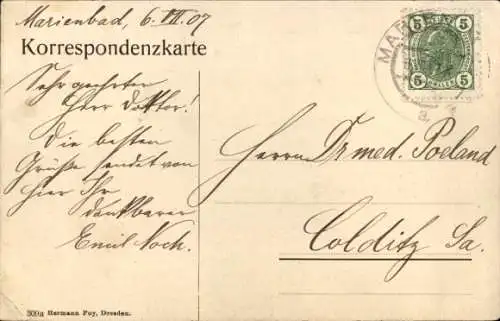 Marienbad, 6. VII. 07
Korrespondenzkarte
5 5
5 HELLER 5
MAR
a
Sehr geehrter
Herr Doktor!
Die besten
Grüße sendet von
hier Ihr
dankbarer
Emil Koch.
Herrn Dr med. Poeland
Colditz Sa.
309a Hermann Poy, Dresden.